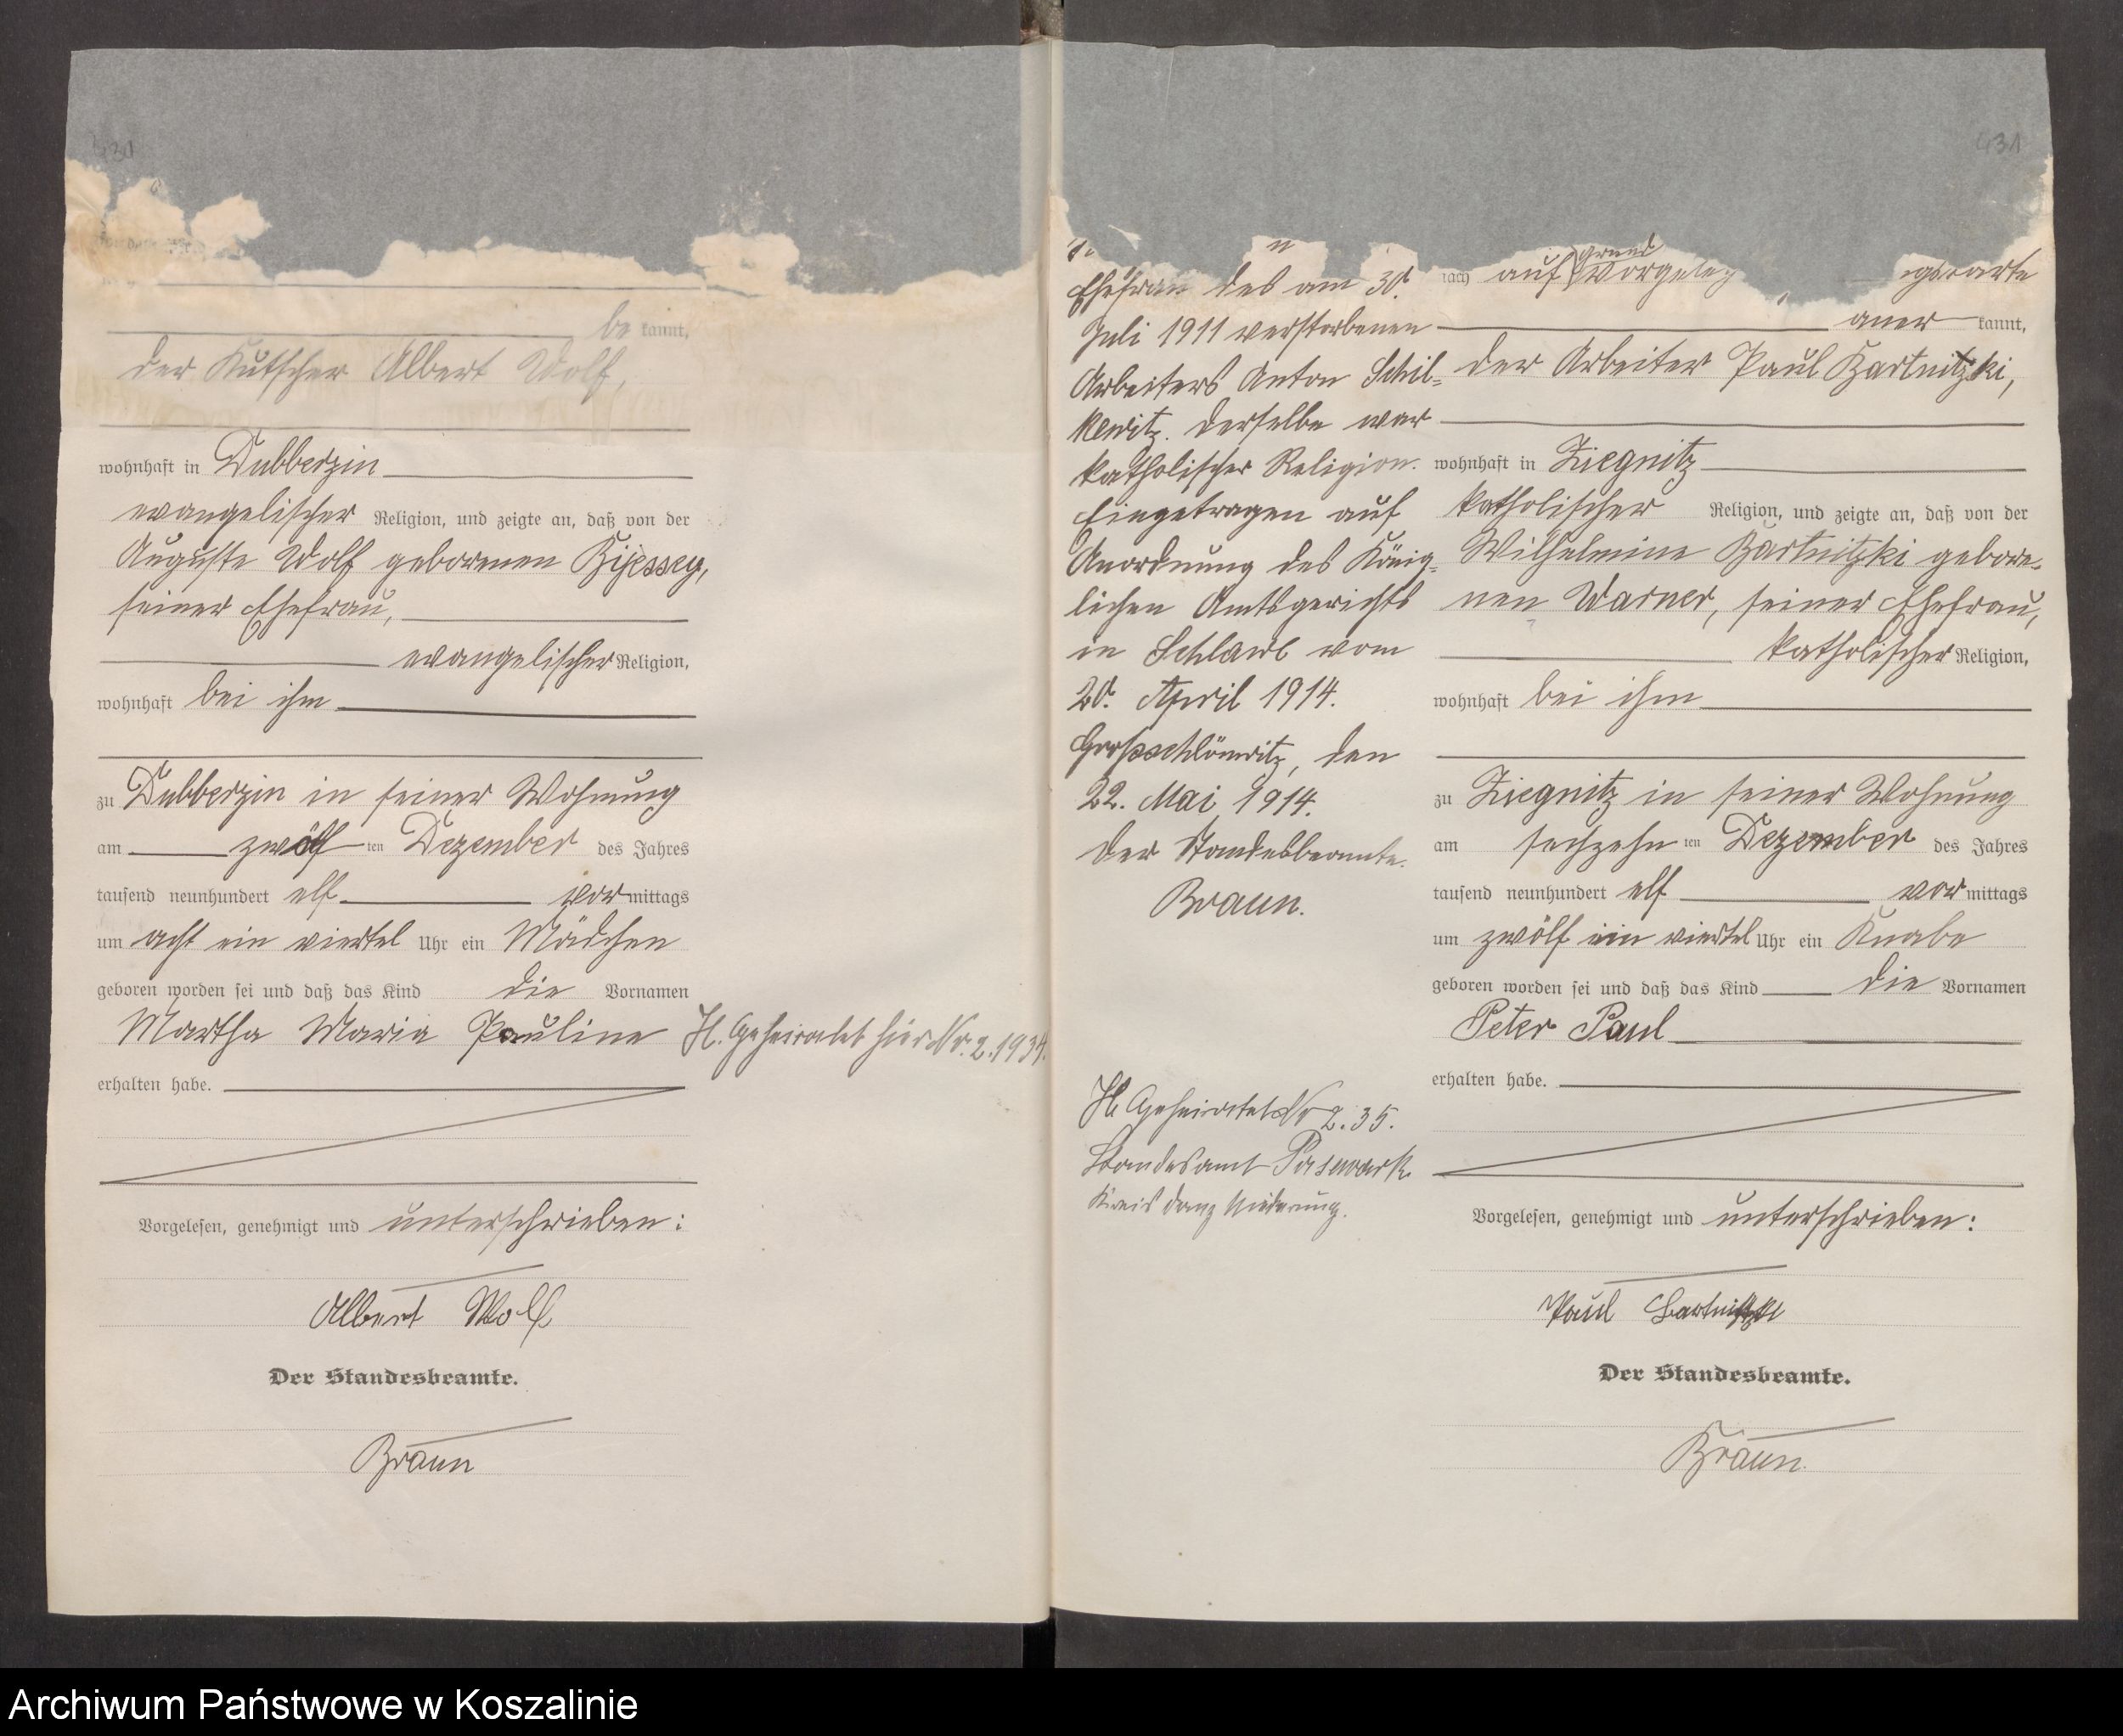 430
be kannt,
der Kutscher Albert Wolf,
wohnhaft in Dubberzin
evangelischer Religion, und zeigte an, daß von der
Auguste Wolf geborenen
seiner Ehefrau,
evangelischer Religion,
wohnhaft bei ihm
zu Dubberzin in seiner Wohnung
am zwölf ten Dezember des Jahres
tausend neunhundert elf vor mittags
um acht ein viertel Uhr ein Mädchen
geboren worden sei und daß das Kind die Vornamen
Martha Maria Pauline
erhalten habe.
H. Geheiratet hier Nr. 2. 1934.
Vorgelesen, genehmigt und unterschrieben:
Albert Wolf
Der Standesbeamte.
Braun
431
Ehefrau des am 30.
Juli 1911 verstorbenen
Arbeiters Anton Schil-
kewitz. Derselbe war
katholischer Religion.
Eingetragen auf
Anordnung des König-
lichen Amtsgerichts
in Schlawe vom
20. April 1914.
Grossschlönwitz, den
22. Mai 1914.
Der Standesbeamte.
Braun.
H. Geheiratet Nr 2. 35.
Standesamt Pasewark
Kreis Danz Niederung.
auf Grund
aner kannt,
der Arbeiter Paul Bartnitzki,
wohnhaft in Ziegnitz
katholischer Religion, und zeigte an, daß von der
Wilhelmine Bartnitzki gebore-
nen Warner, seiner Ehefrau,
katholischer Religion,
wohnhaft bei ihm
zu Ziegnitz in seiner Wohnung
am sechzehn ten Dezember des Jahres
tausend neunhundert elf vor mittags
um zwölf ein viertel Uhr ein Knabe
geboren worden sei und daß das Kind die Vornamen
Peter Paul
erhalten habe.
Vorgelesen, genehmigt und unterschrieben:
Paul Bartnitzki
Der Standesbeamte.
Braun.
Archiwum Państwowe w Koszalinie